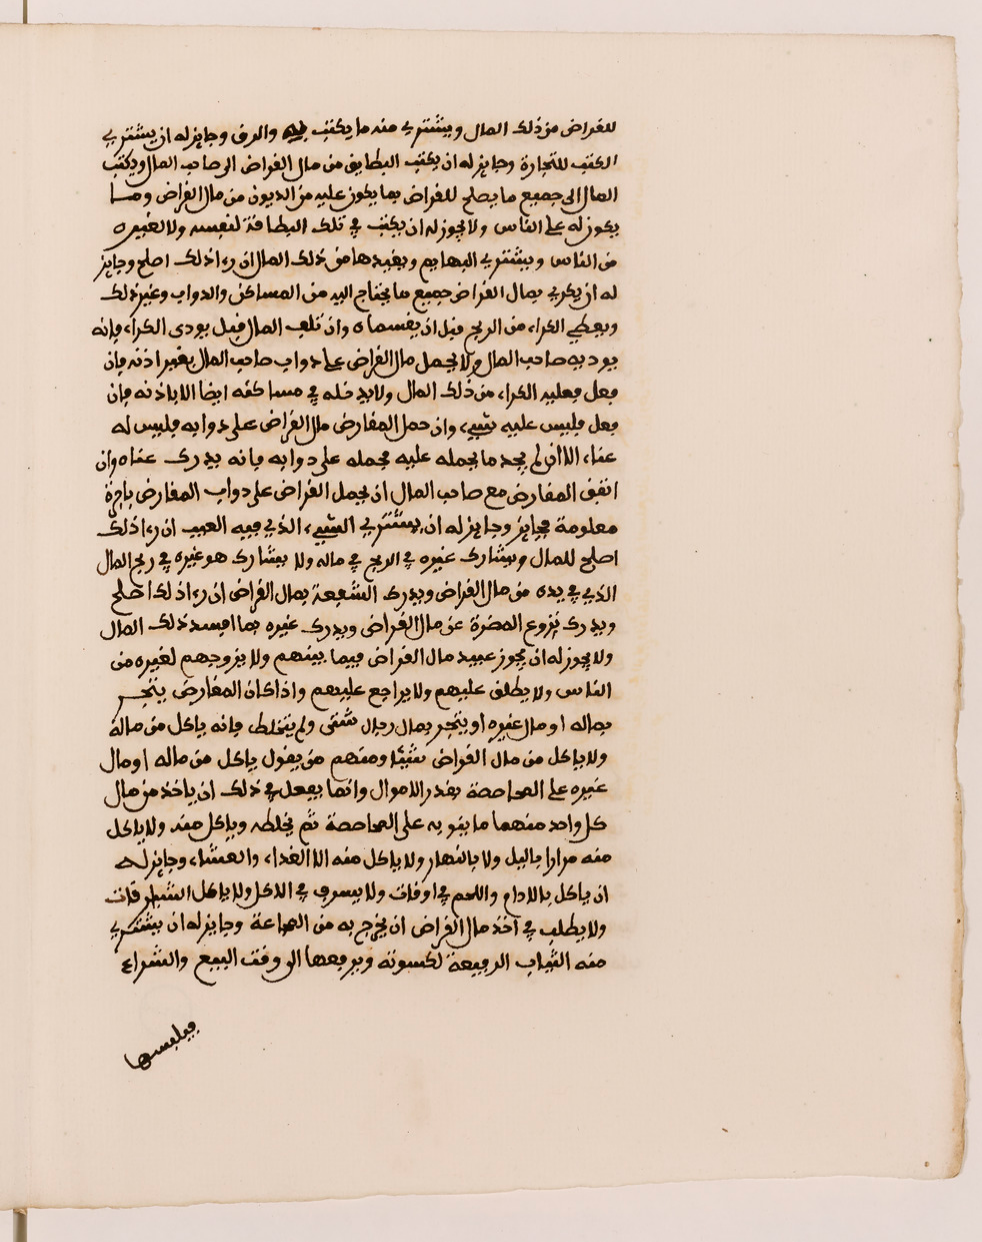 للقراض من ذلك المال ويشتري منه ما يكتب فيه والرق وجايز له ان يشتري
الكتب للتجارة وجايز له ان يكتب البطايق من مال القراض الى صاحب المال ويكتب
المال الى جميع ما يصلح للقراض بما يكون عليه من الديون من مال القراض وما
يكون له على الناس ولا يجوز له ان يكتب في تلك البطاقة لنفسه ولا لغيره
من الناس ويشتري البهايم ويقيدها من ذلك المال ان رءا ذلك اصلح وجايز
له ان يكري بمال القراض جميع ما يحتاج اليه من المساكن والدواب وغير ذلك
ويعطي الكراء من الربح قبل ان يقسماه وان تلف المال قبل يودى الكراء فانه
يوديه صاحب المال ولا يحمل مال القراض على دواب صاحب المال بغير اذنه فان
فعل فعليه الكراء من ذلك المال ولا يدخله في مساكنه ايضا الا باذنه فان
فعل فليس عليه شيء وان حمل المقارض مال القراض على دوابه فليس له
عناء الا ان لم يجد ما يحمله عليه فحمله على دوابه فانه يدرك عناه وان
اتفق المقارض مع صاحب المال ان يحمل القراض على دواب المقارض باجرة
معلومة فجايز وجايز له ان يشتري الشيء الذي فيه العيب ان رءا ذلك
اصلح للمال ويشارك غيره في الربح في ماله ولا يشارك هو غيره في ربح المال
الذي في يده من مال القراض ويدرك الشفعة بمال القراض ان رءا ذلك اصلح
ويدرك نزوع المضرة عن مال القراض ويدرك غيره بما افسد ذلك المال
ولا يجوز له ان يجوز عبيد مال القراض فيما بينهم ولا يزوجهم لغيره من
الناس ولا يطلق عليهم ولا يراجع عليهم واذا كان المقارض يتجر
بماله او مال غيره او يتجر بمال رجال شتى ولم يختلط فانه ياكل من ماله
ولا ياكل من مال القراض شيئا ومنهم من يقول ياكل من ماله او مال
غيره على المحاصصة بقدر الاموال وانما يفعل في ذلك ان ياخذ من مال
كل واحد منهما ما ينوبه على المحاصصة ثم يخلطه وياكل منه ولا ياكل
منه مرارا باليل ولا بالنهار ولا ياكل منه الا الغداء والعشاء وجايز له
ان ياكل بالادام واللحم في اوقات ولا يسرف في الاكل ولا ياكل
ولا يطلب في اخذ مال القراض ان يخرج به من الجماعة وجايز له ان يشتري
منه الثياب الرفيعة لكسوته ويرفعها الى وقت البيع والشراء
فيلبسها